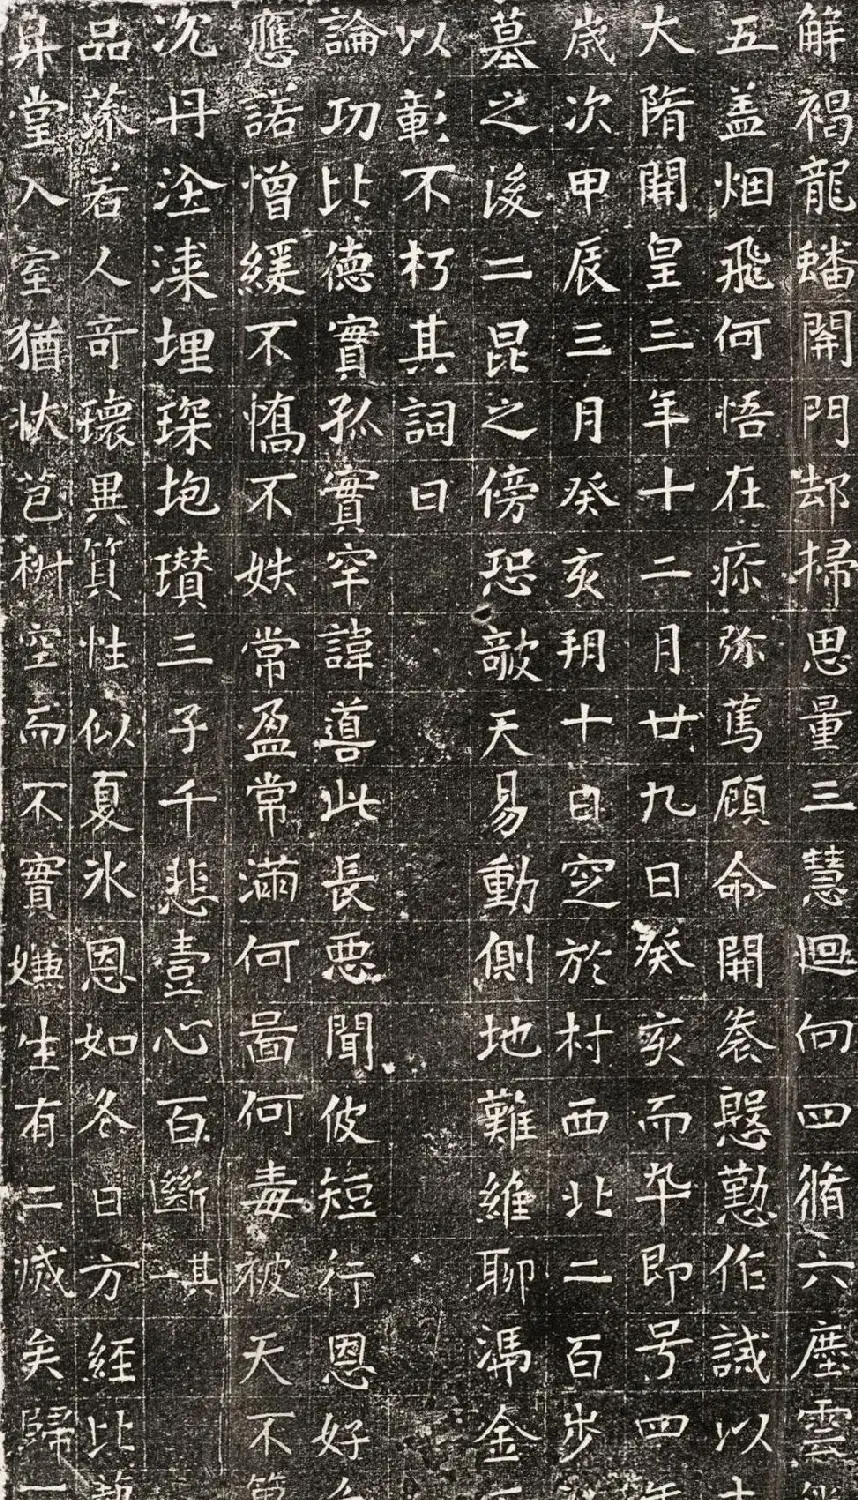 解褐龍蟠開門却掃思量三慧迴向四脩六塵雲
五盖烟飛何悟在疹弥篤顧命開衾慇懃作誡以
大隋開皇三年十二月廿九日癸亥而卒即号四年
歲次甲辰三月癸亥朔十日窆於村西北二百步
墓之後二昆之傍恐敧天易動側地難維聊憑金
以彰不朽其詞曰
論功比德實孤實罕諱善此長惡聞彼短行恩好
應諾憎緩不憍不妷常盈常滿何啚何毒被天不
沉丹塗漆埋琛抱瓚三子千悲壹心百斷其一
品藻若人奇瓌異質性似夏氷恩如冬日方經比
昇堂入室猶狀芭枡空而不實嫌生有二滅矣歸一